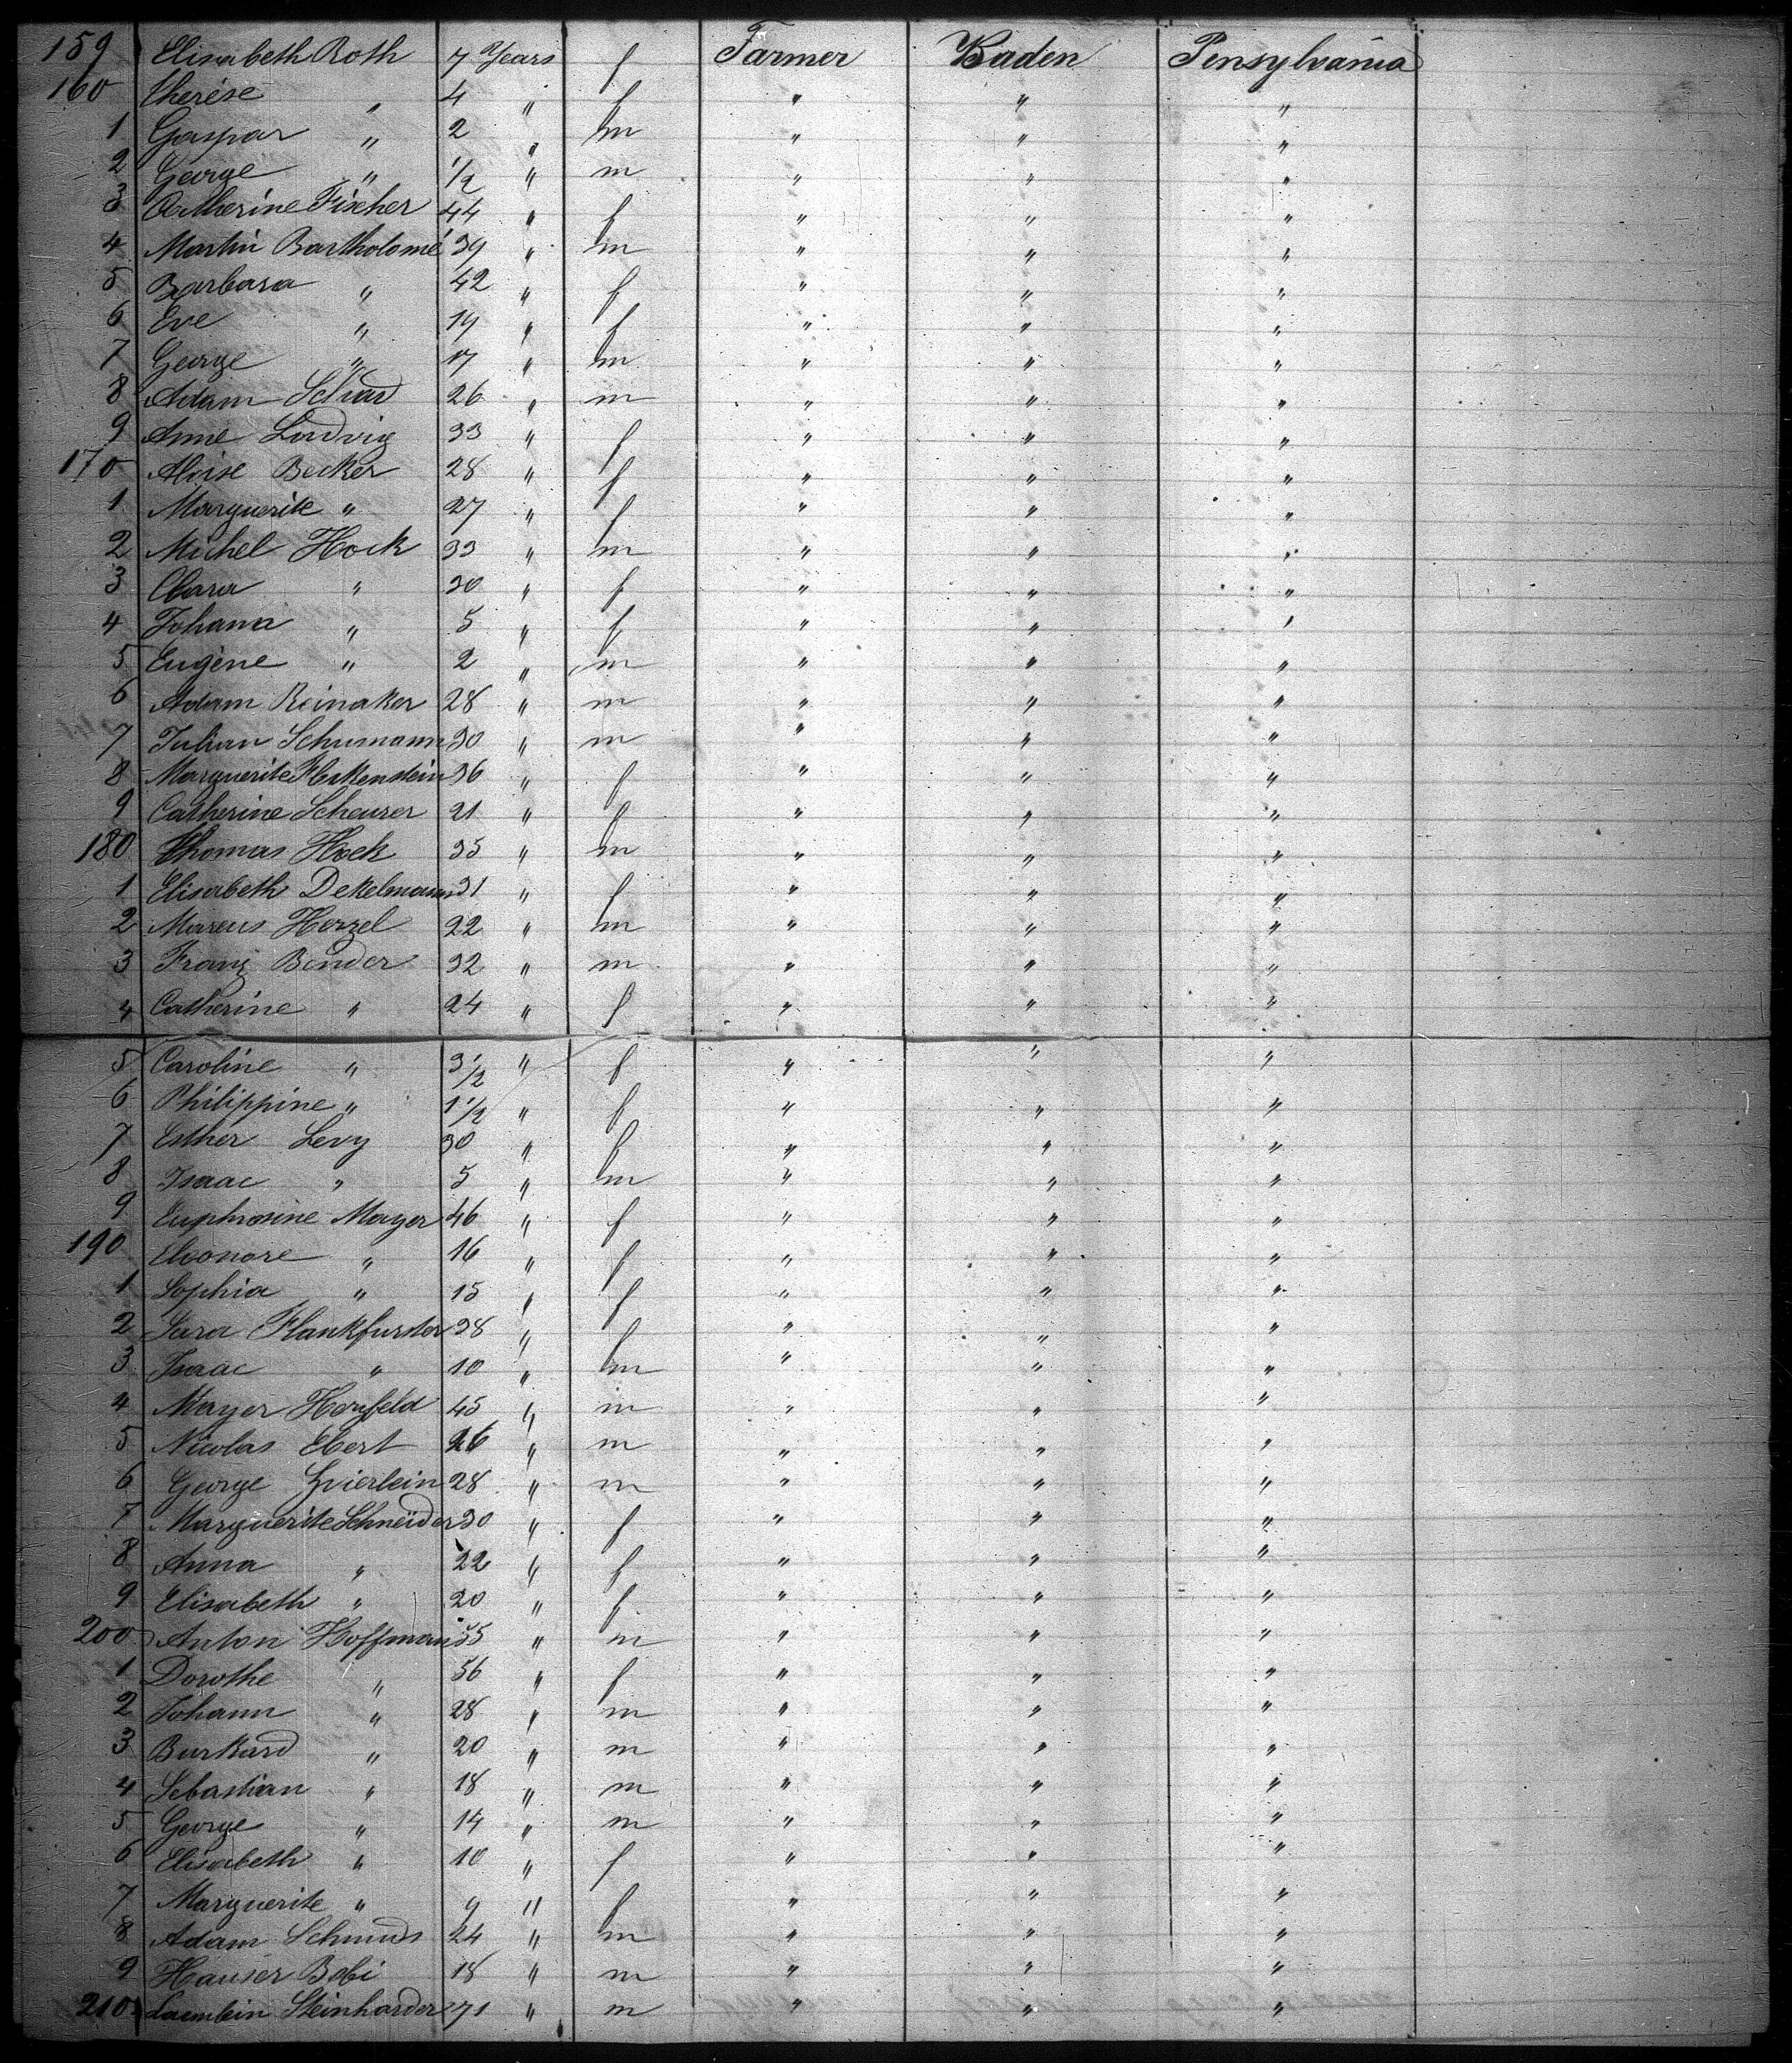 159 Elisabeth Roth 7 Years f Farmer Baden Pensylvania
160 Therése " 4 " f " " "
1 Gaspar " 2 " m " " "
2 George " 1/2 " m " " "
3 Catherine Fischer 44 " f " " "
4 Martin Bartholomé 39 " m " " "
5 Barbara " 42 " f " " "
6 Eve " 19 " f " " "
7 George " 17 " m " " "
8 Adam 26 " m " " "
9 Anne Ludvig 33 " f " " "
170 Aloise Becker 28 " f " " "
1 Marguerite " 27 " f " " "
2 Michel Hock 33 " m " " "
3 Clara " 30 " f " " "
4 Johana " 5 " f " " "
5 Eugène " 2 " m " " "
6 Adam Reinaker 28 " m " " "
7 Julian Schumann 30 " m " " "
8 Marguerite Flekenstein 36 " f " " "
9 Catherine Scheurer 21 " f " " "
180 Thomas Hock 35 " m " " "
1 Elisabeth Dekelmann 31 " f " " "
2 Marcus Herzel 22 " m " " "
3 Franz Bender 32 " m " " "
4 Catherine " 24 " f " " "
5 Caroline " 3 1/2 " f " " "
6 Philippine " 1 1/2 " f " " "
7 Esther Levy 30 " f " " "
8 Isaac " 5 " m " " "
9 Euphrosine Mayer 46 " f " " "
190 Eleonore " 16 " f " " "
1 Sophia " 15 " f " " "
2 Sara Flankfurster 38 " f " " "
3 Isaac " 10 " m " " "
4 Mayer Herzfeld 45 " m " " "
5 Nicolas Ebert 26 " m " " "
6 George Zvierlein 28 " m " " "
7 Marguerite Schneider 30 " f " " "
8 Anna " 22 " f " " "
9 Elisabeth " 20 " f " " "
200 Anton Hoffman 55 " m " " "
1 Dorothe " 56 " f " " "
2 Johann " 28 " m " " "
3 Burkard " 20 " m " " "
4 Sebastian " 18 " m " " "
5 George " 14 " m " " "
6 Elisabeth " 10 " f " " "
7 Marguerite " 9 " f " " "
8 Adam 24 " m " " "
9 Hauser Bobi 18 " m " " "
210 Steinharder 71 " m " " "